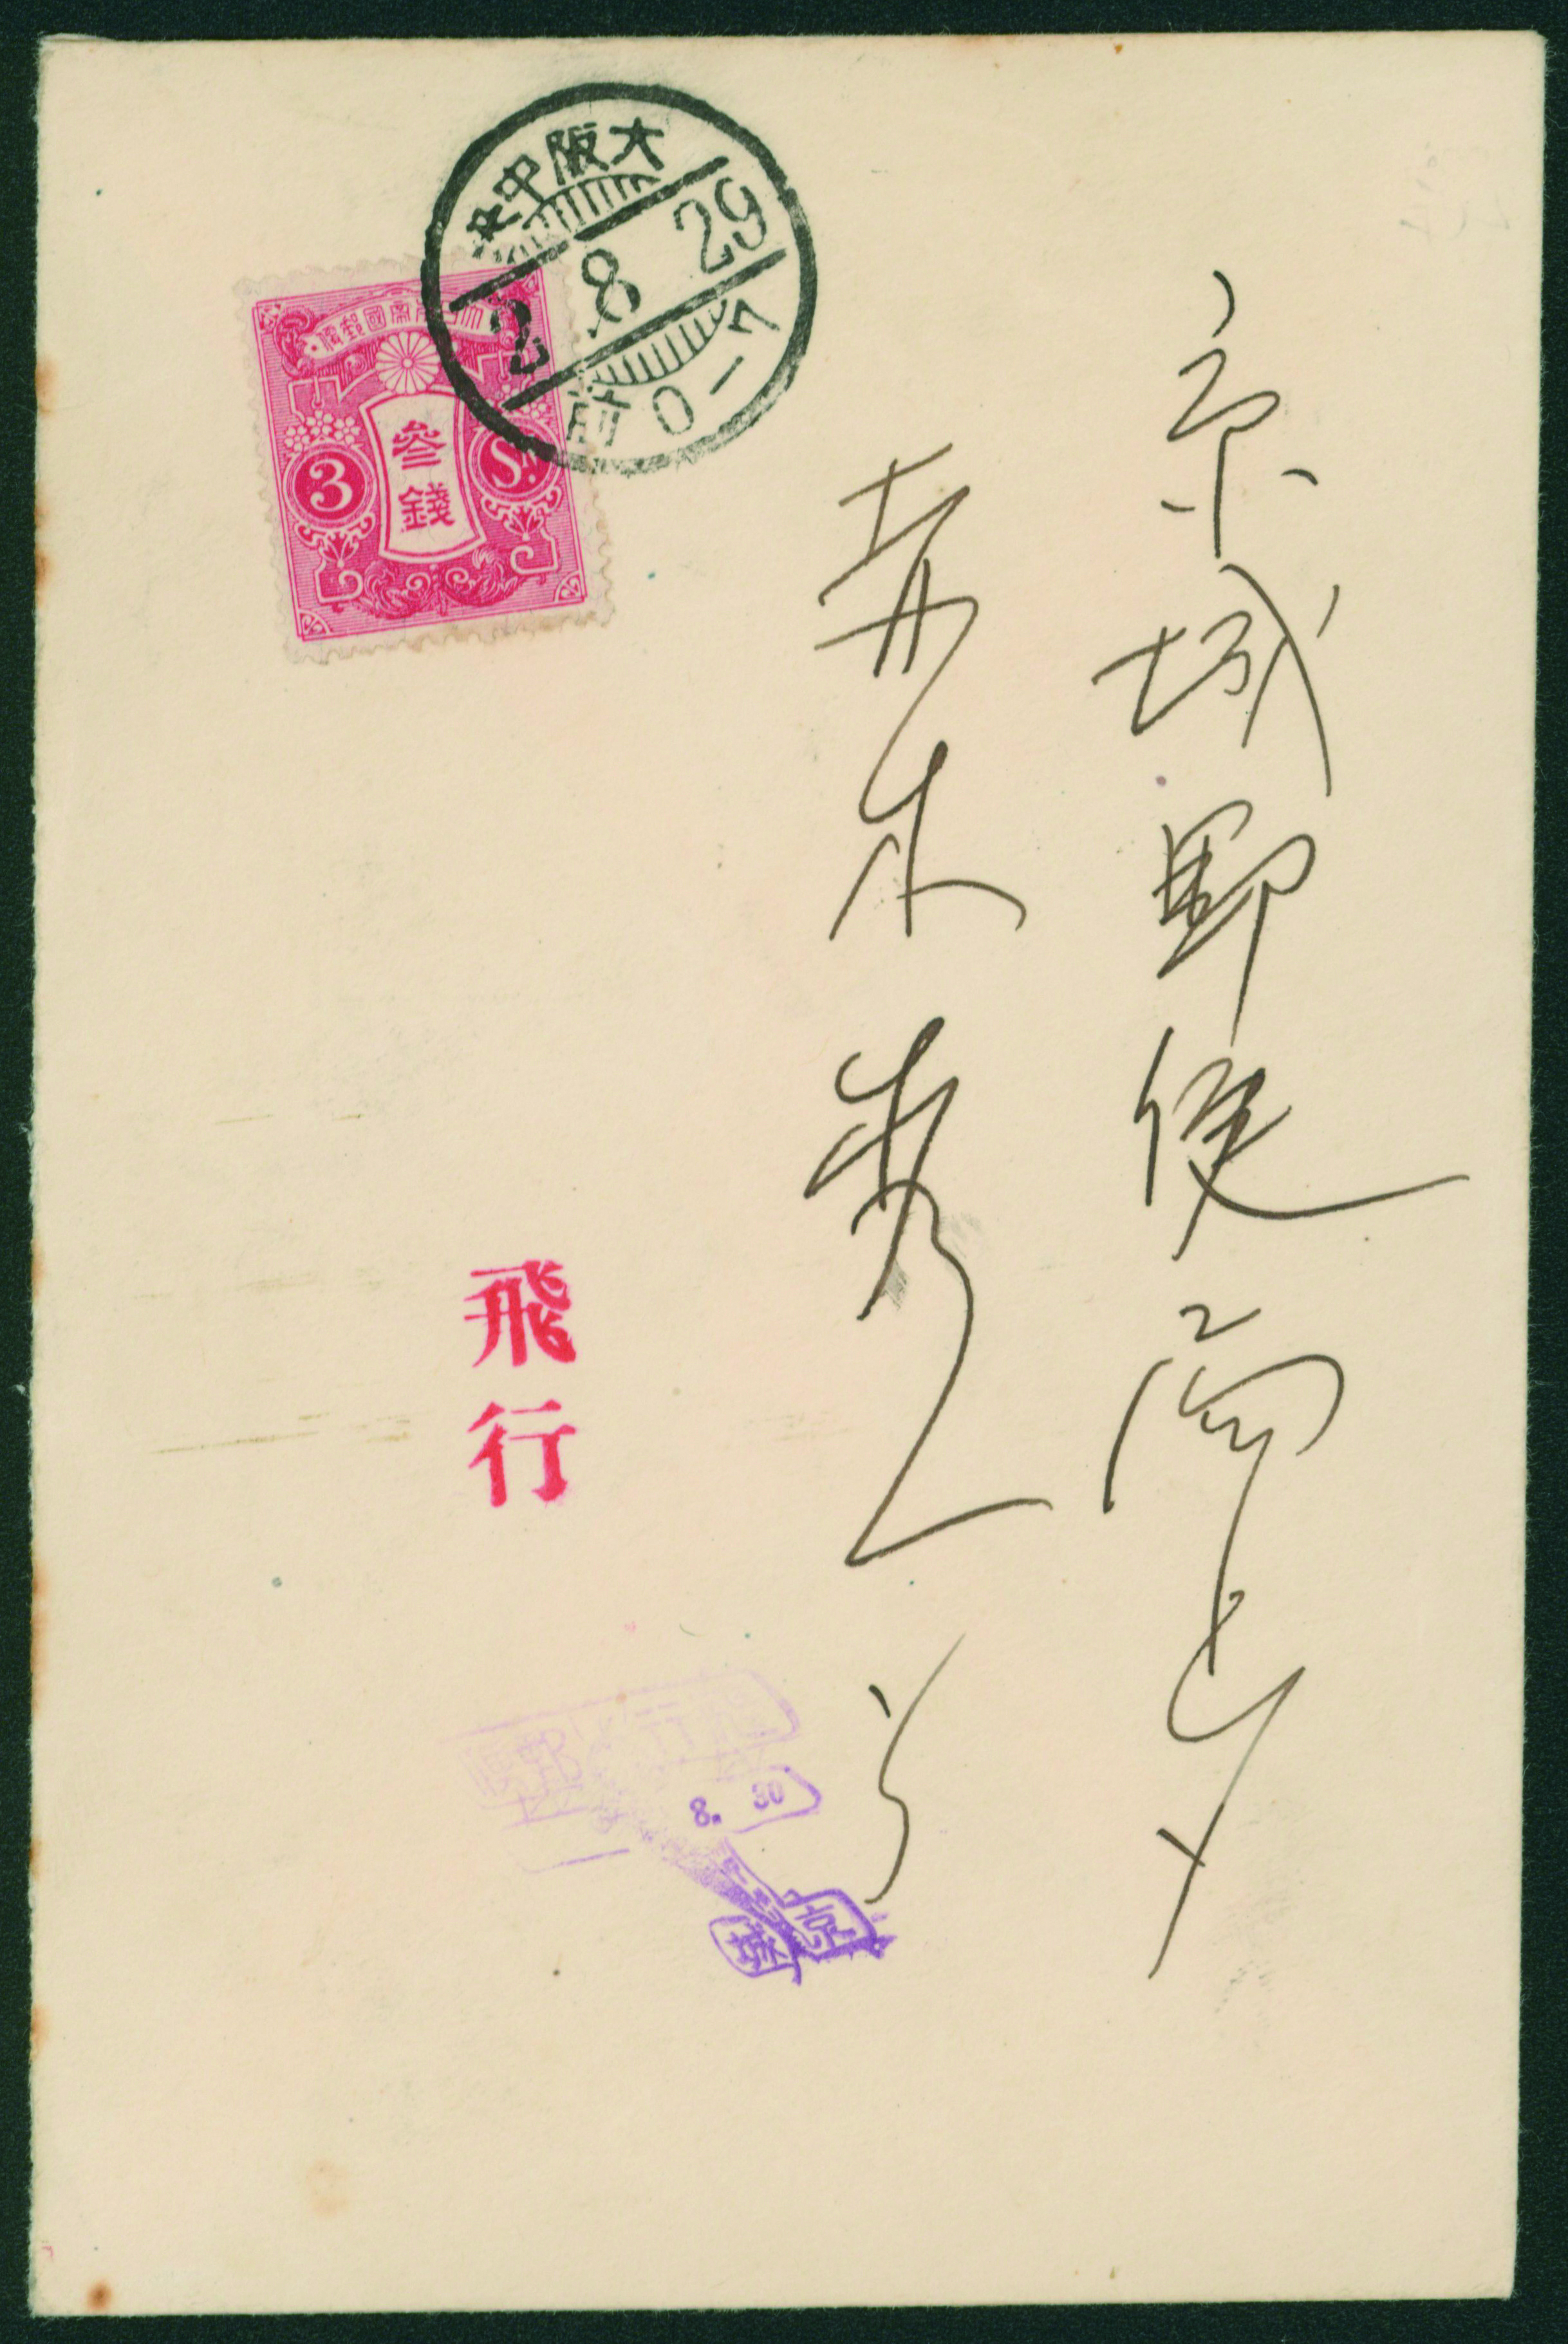 大阪中央
2 8 29
前0-7
大日本帝國郵便
參錢
3 Sn.
京城郵便局
赤木秀
飛行
飛行郵便
8. 30
京城